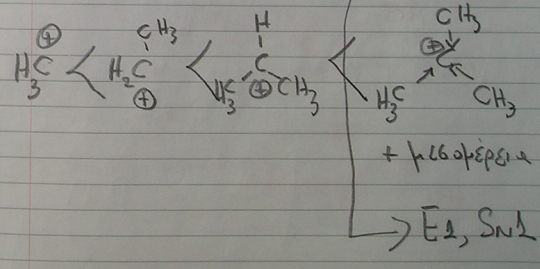 H₃C⊕ < H₂C⊕–CH₃ < H–C⊕(H₃C)(CH₃) < CH₃ C⊕ H₃C CH₃
+ μεσομέρεια
→ E1, SN1